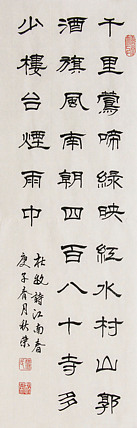 千里鶯啼綠映紅水村山郭
酒旗風南朝四百八十寺多
少樓台煙雨中
杜牧詩江南春
庚子春月